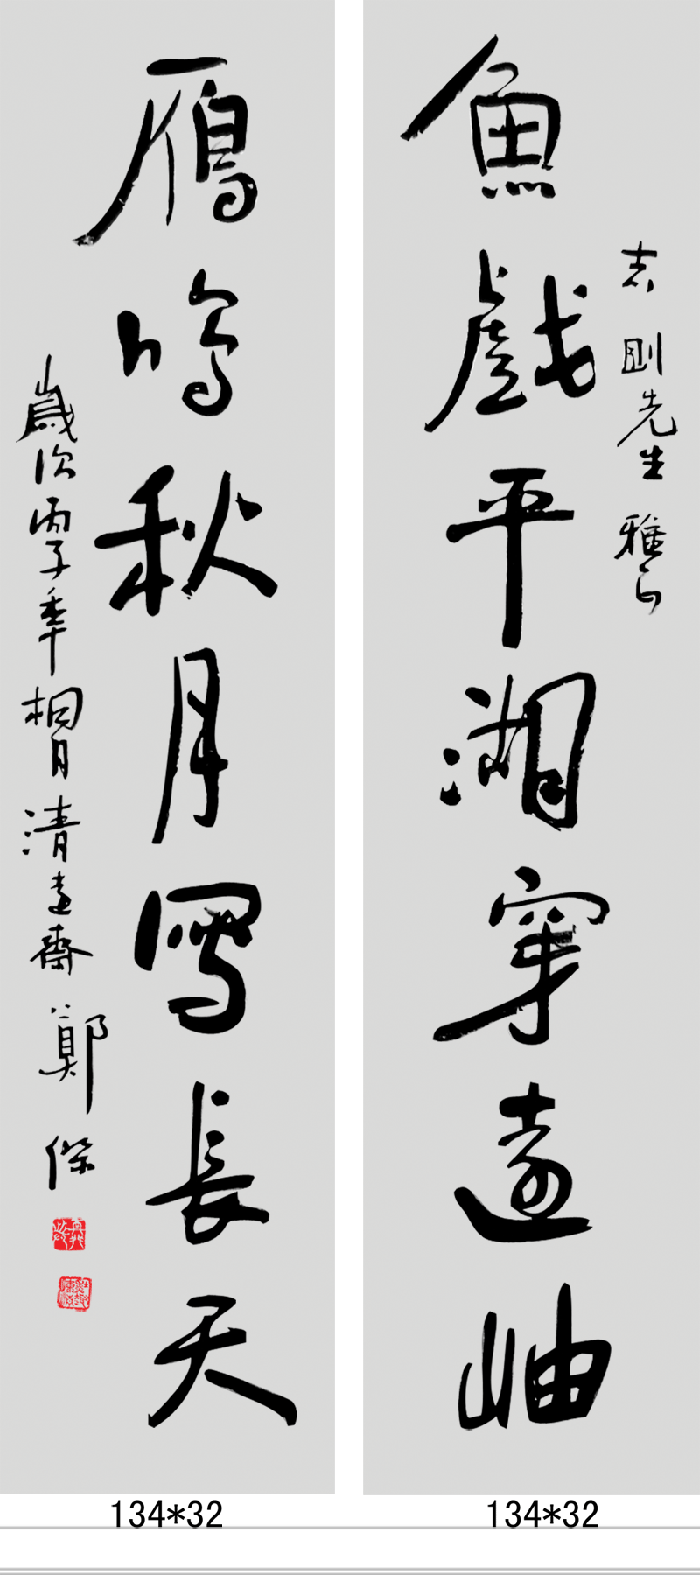 魚戲平湖穿遠岫
志剛先生雅正
雁鳴秋月寫長天
歲次丙子年桐月清遠齋鄭傑
134*32
134*32